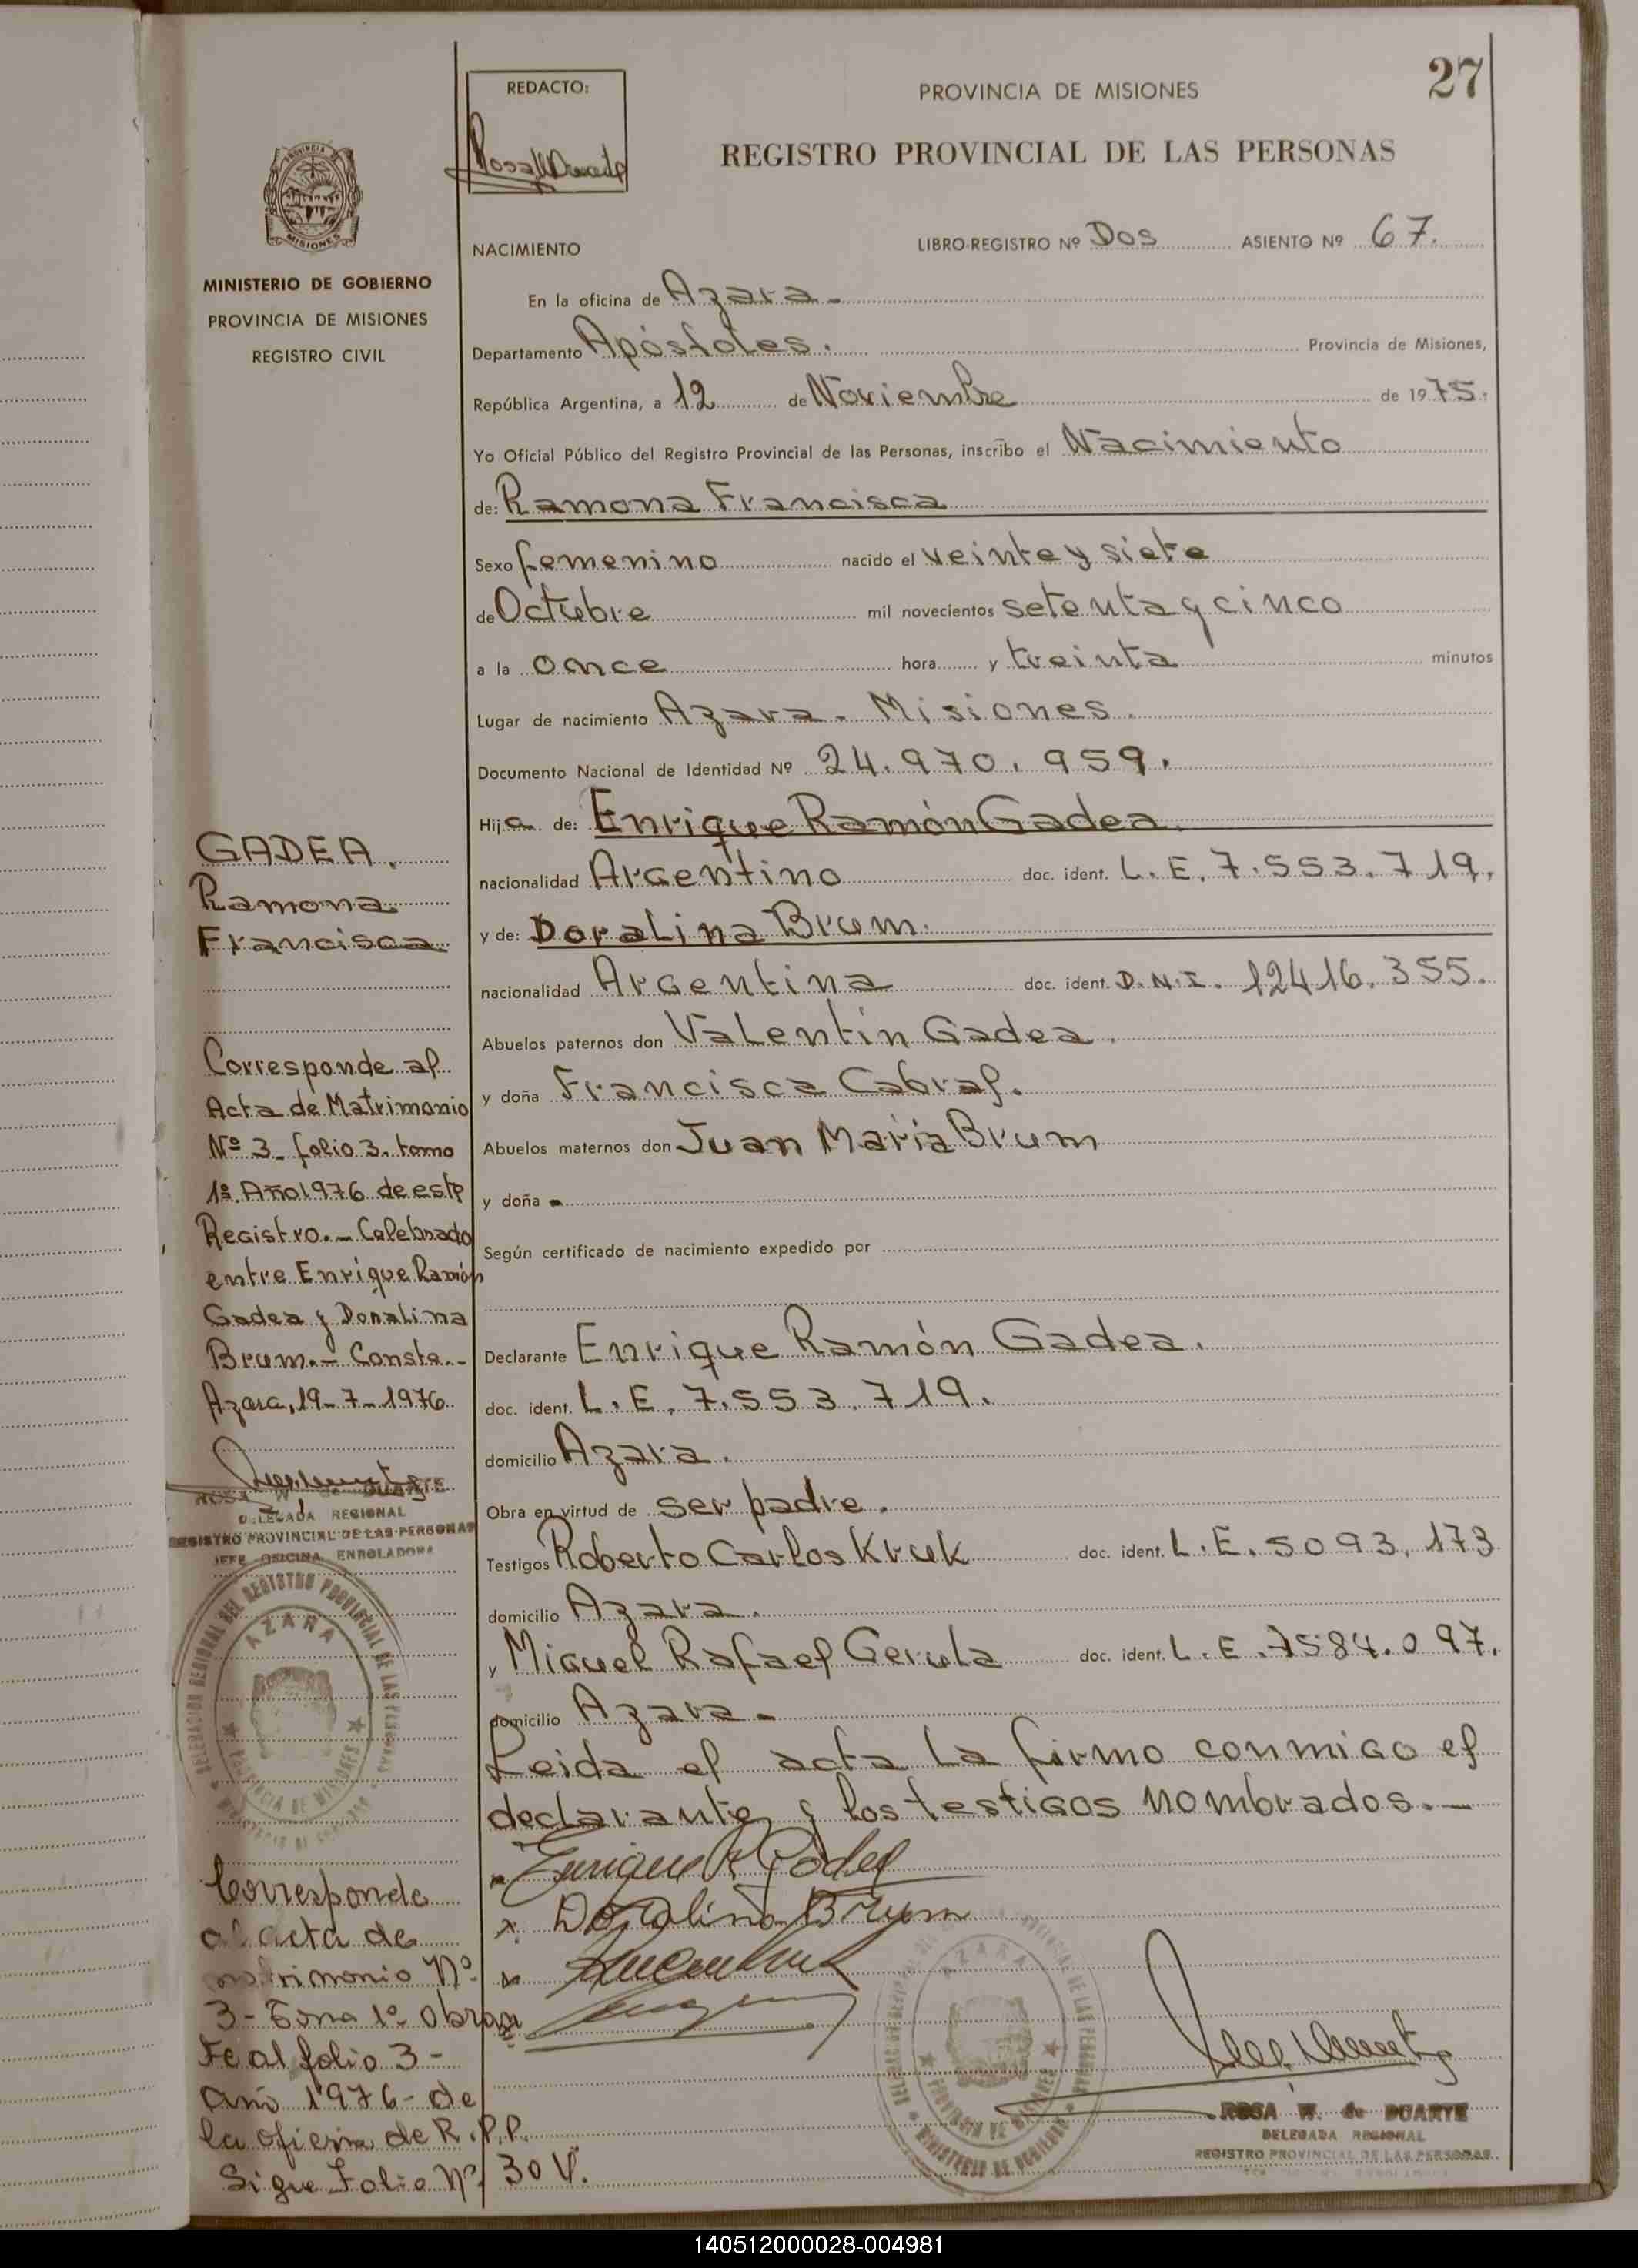 27
REDACTO:
PROVINCIA DE MISIONES
REGISTRO PROVINCIAL DE LAS PERSONAS
PROVINCIA
MISIONES
MINISTERIO DE GOBIERNO
PROVINCIA DE MISIONES
REGISTRO CIVIL
NACIMIENTO
LIBRO-REGISTRO Nº Dos ASIENTO Nº 67.
En la oficina de Azara.
Departamento Apóstoles. Provincia de Misiones,
República Argentina, a 12 de Noviembre de 1975.
Yo Oficial Público del Registro Provincial de las Personas, inscribo el Nacimiento
de: Ramona Francisca
Sexo femenino nacido el veinte y siete
de Octubre mil novecientos setenta y cinco
a la once hora y treinta minutos
Lugar de nacimiento Azara - Misiones.
Documento Nacional de Identidad Nº 24.970.959.
Hija de: Enrique Ramón Gadea.
nacionalidad Argentino doc. ident. L.E. 7.553.719.
y de: Doralina Brum.
nacionalidad Argentina doc. ident. D.N.I. 12416.355.
Abuelos paternos don Valentín Gadea.
y doña Francisca Cabral.
Abuelos maternos don Juan María Brum
y doña -
Según certificado de nacimiento expedido por
Declarante Enrique Ramón Gadea.
doc. ident. L.E. 7.553.719.
domicilio Azara.
Obra en virtud de ser padre.
Testigos Roberto Carlos Kruk doc. ident. L.E. 5093.173
domicilio Azara.
y Miguel Rafael Gerula doc. ident. L.E. 7584.097.
domicilio Azara.
Leida el acta la firmo conmigo el
declarante y los testigos nombrados.-
Enrique R Gadea
x Doralina Brum
ROSA W. de DUARTE
DELEGADA REGIONAL
REGISTRO PROVINCIAL DE LAS PERSONAS
GADEA.
Ramona
Francisca
Corresponde al
Acta de Matrimonio
Nº 3 - folio 3. tomo
1º. Año 1976 de este
Registro.- Celebrado
entre Enrique Ramón
Gadea y Doralina
Brum.- Conste.-
Azara, 19-7-1976.
DELEGADA REGIONAL
REGISTRO PROVINCIAL DE LAS PERSONAS
JEFE OFICINA ENROLADORA
DELEGACION REGIONAL DEL REGISTRO PROVINCIAL DE LAS PERSONAS
AZARA
PROVINCIA DE MISIONES
Corresponde
al acta de
matrimonio Nº
3 - Tomo 1º. obran
Fe al folio 3 -
Año 1976 - de
la oficina de R.P.P.
Sigue Folio Nº 30 V.
AZARA
PROVINCIA DE MISIONES
MINISTERIO DE GOBIERNO
140512000028-004981